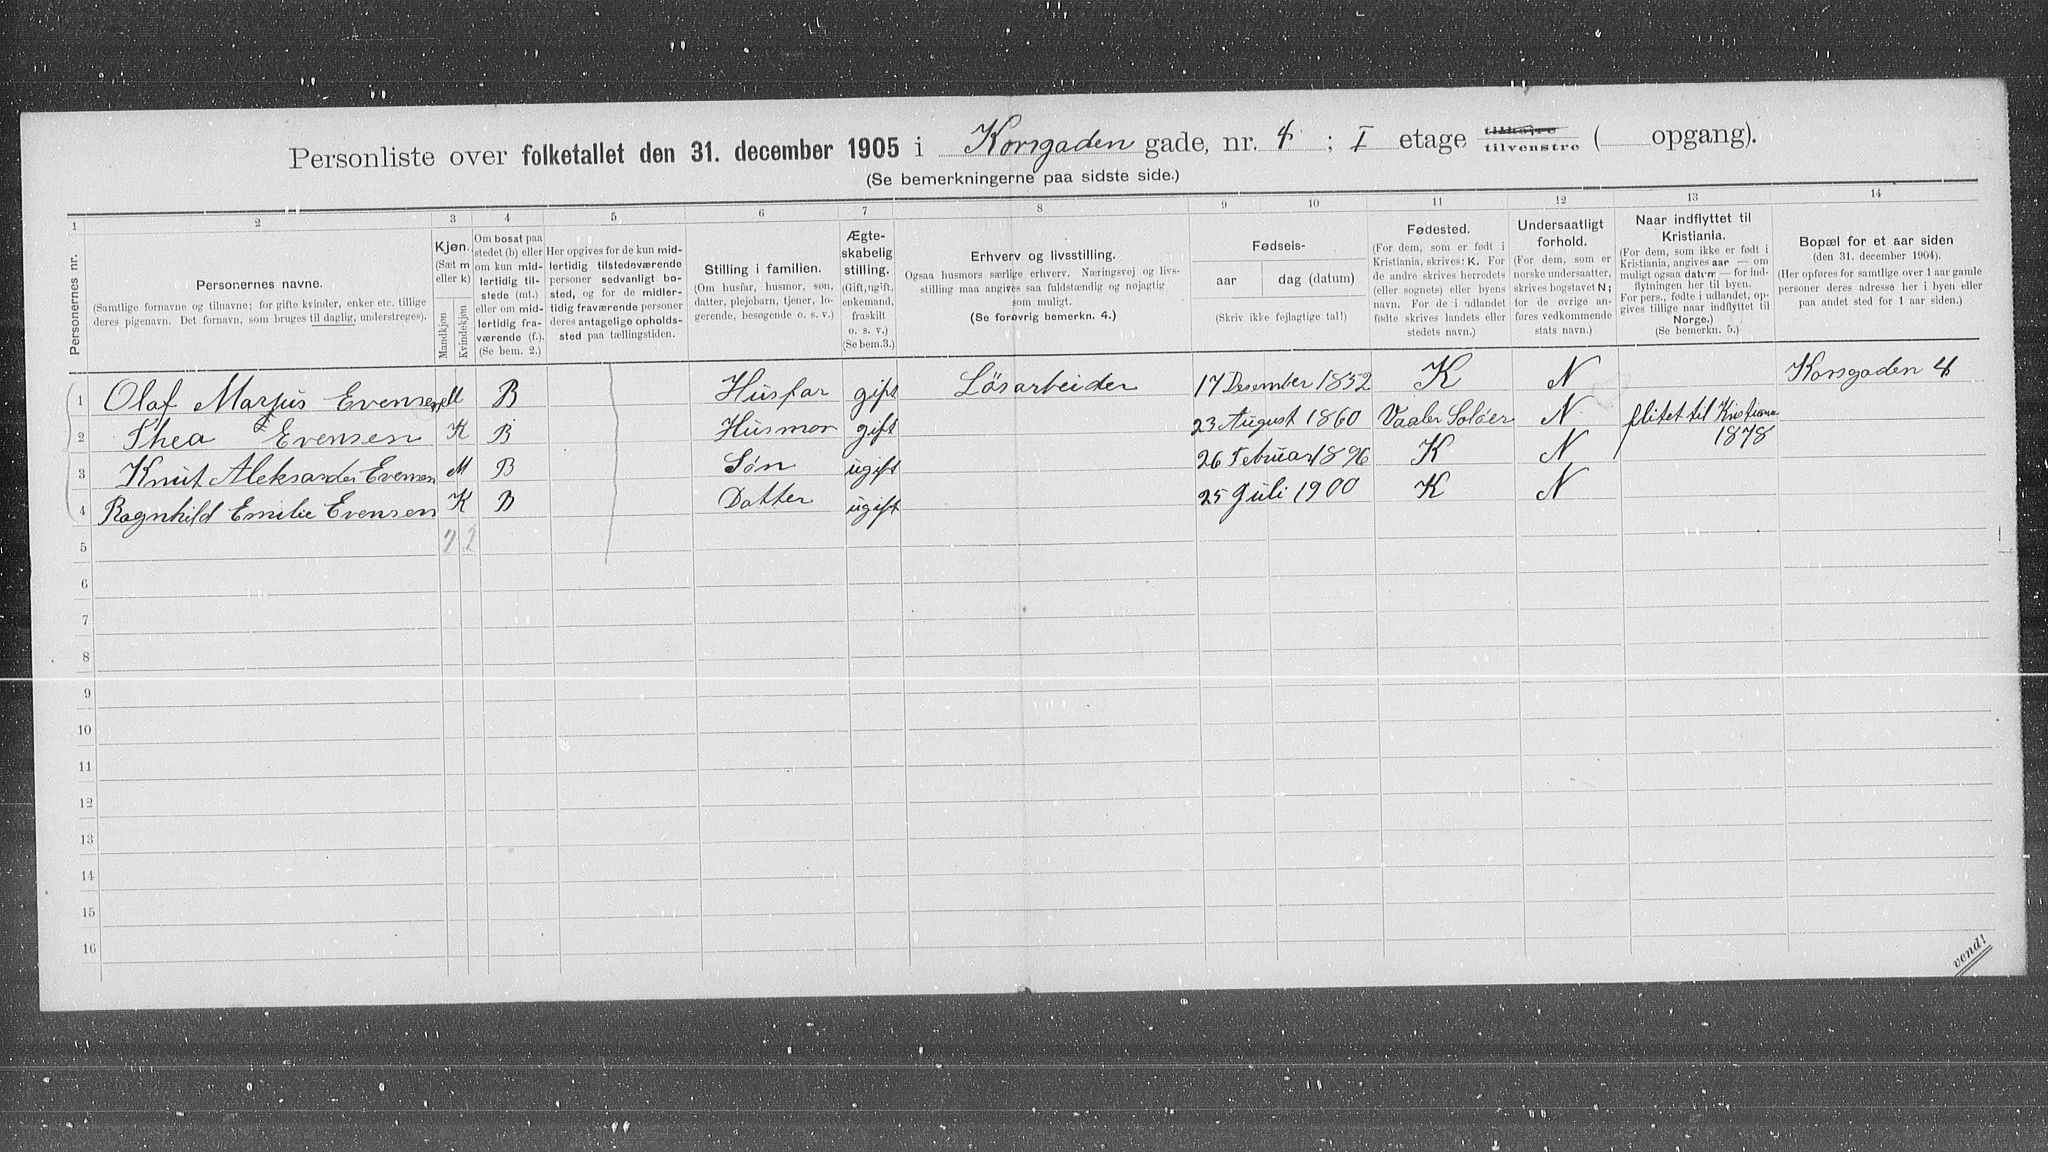 Personliste over folketallet den 31. december 1905 i Korsgaden gade, nr. 4 ; I etage tilhøire tilvenstre ( opgang).
(Se bemerkningerne paa sidste side.)
1 2 3 4 5 6 7 8 9 10 11 12 13 14
Personernes nr.
Personernes navne.
(Samtlige fornavne og tilnavne; for gifte kvinder, enker etc. tillige
deres pigenavn. Det fornavn, som bruges til daglig, understreges).
Kjøn.
(Sæt m
eller k)
Mandkjøn
Kvindekjøn
Om bosat paa
stedet (b) eller
om kun mid-
lertidig til-
stede (mt.)
eller om mid-
lertidig fra-
værende (f.).
(Se bem. 2.)
Her opgives for de kun mid-
lertidig tilstedeværende
personer sedvanligt bo-
sted, og for de midler-
tidig fraværende personer
deres antagelige opholds-
sted paa tællingstiden.
Stilling i familien.
(Om husfar, husmor, søn,
datter, plejebarn, tjener, lo-
gerende, besøgende o. s. v.)
Ægte-
skabelig
stilling.
(Gift, ugift,
enkemand,
fraskilt
o. s. v.)
(Se bem.3.)
Erhverv og livsstilling.
Ogsaa husmors særlige erhverv. Næringsvej og livs-
stilling maa angives saa fuldstændig og nøjagtig
som muligt.
(Se forøvrig bemerkn. 4.)
Fødsels-
aar
dag (datum)
(Skriv ikke fejlagtige tal!)
Fødested.
(For dem, som er født i
Kristiania, skrives: K. For
de andre skrives herredets
(eller sognets) eller byens
navn. For de i udlandet
fødte skrives landets eller
stedets navn.)
Undersaatligt
forhold.
(For dem, som er
norske undersaatter,
skrives bogstavet N;
for de øvrige an-
føres vedkommende
stats navn.)
Naar indflyttet til
Kristiania.
(For dem, som ikke er født i
Kristiania, angives aar — om
muligt ogsaa datum — for ind-
flytningen her til byen.
For pers., fødte i udlandet, op-
gives tillige naar indflyttet til
Norge.)
(Se bemerkn. 5.)
Bopæl for et aar siden
(den 31. december 1904).
(Her opføres for samtlige over 1 aar gamle
personer deres adresse her i byen eller
paa andet sted for 1 aar siden.)
1 Olaf Marjus Evensen M B Husfar gift Løsarbeider 17 Desember 1852 K N Korsgaden 4
2 Thea Evensen K B Husmor gift 23 August 1860 Vaaler Soløer N flitet til Kristiania
1878
3 Knut Aleksander Evensen M B Søn ugift 26 Februar 1896 K N
4 Ragnhild Emilie Evensen K B Datter ugift 25 Juli 1900 K N
5 2 2
6
7
8
9
10
11
12
13
14
15
16
vend!